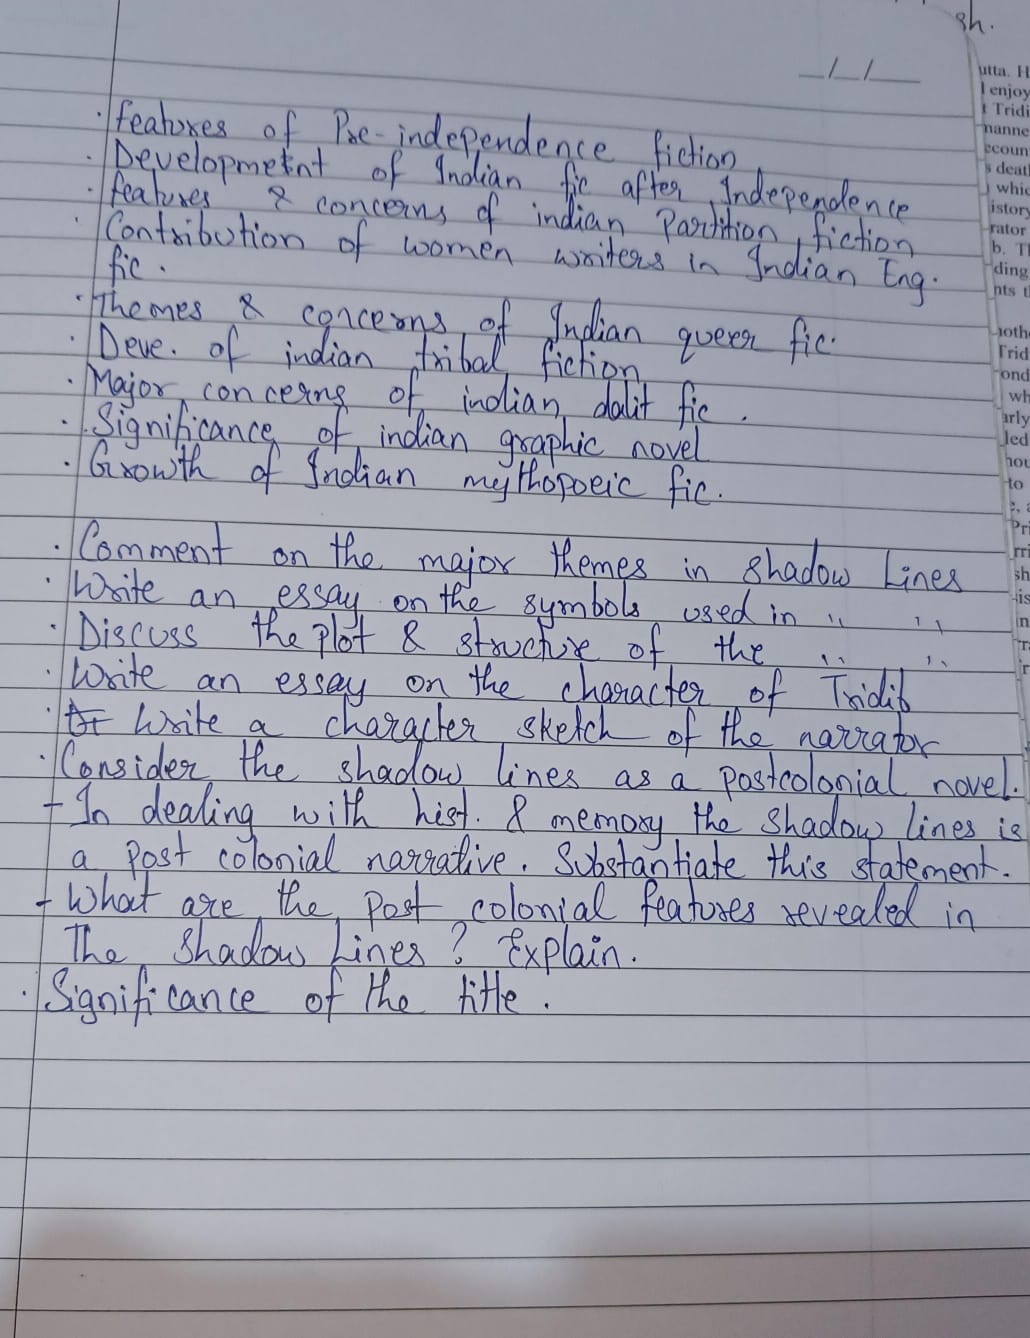 sh.
_/_/__
· features of Pre-independence fiction
· Development of Indian fic after Independence
· features & concerns of indian Partition fiction
· Contribution of women writers in Indian Eng.
fic.
· Themes & concerns of Indian queer fic.
· Deve. of indian tribal fiction
· Major concerns of indian dalit fic.
· Significance of indian graphic novel
· Growth of Indian mythopoeic fic.
· Comment on the major themes in Shadow Lines
· Write an essay on the symbols used in " "
· Discuss the plot & structure of the " "
· Write an essay on the character of Tridib
· Write a character sketch of the narrator
· Consider the shadow lines as a postcolonial novel.
- In dealing with hist. & memory the shadow lines is
a post colonial narrative. Substantiate this statement.
- What are the Post colonial features revealed in
The Shadow Lines? Explain.
· Significance of the title.
utta. H
I enjoy
t Tridi
nanne
ecoun
s deat
whic
istory
rator
b. Tl
ding
nts t
noth
Trid
ond
wh
arly
led
hou
to